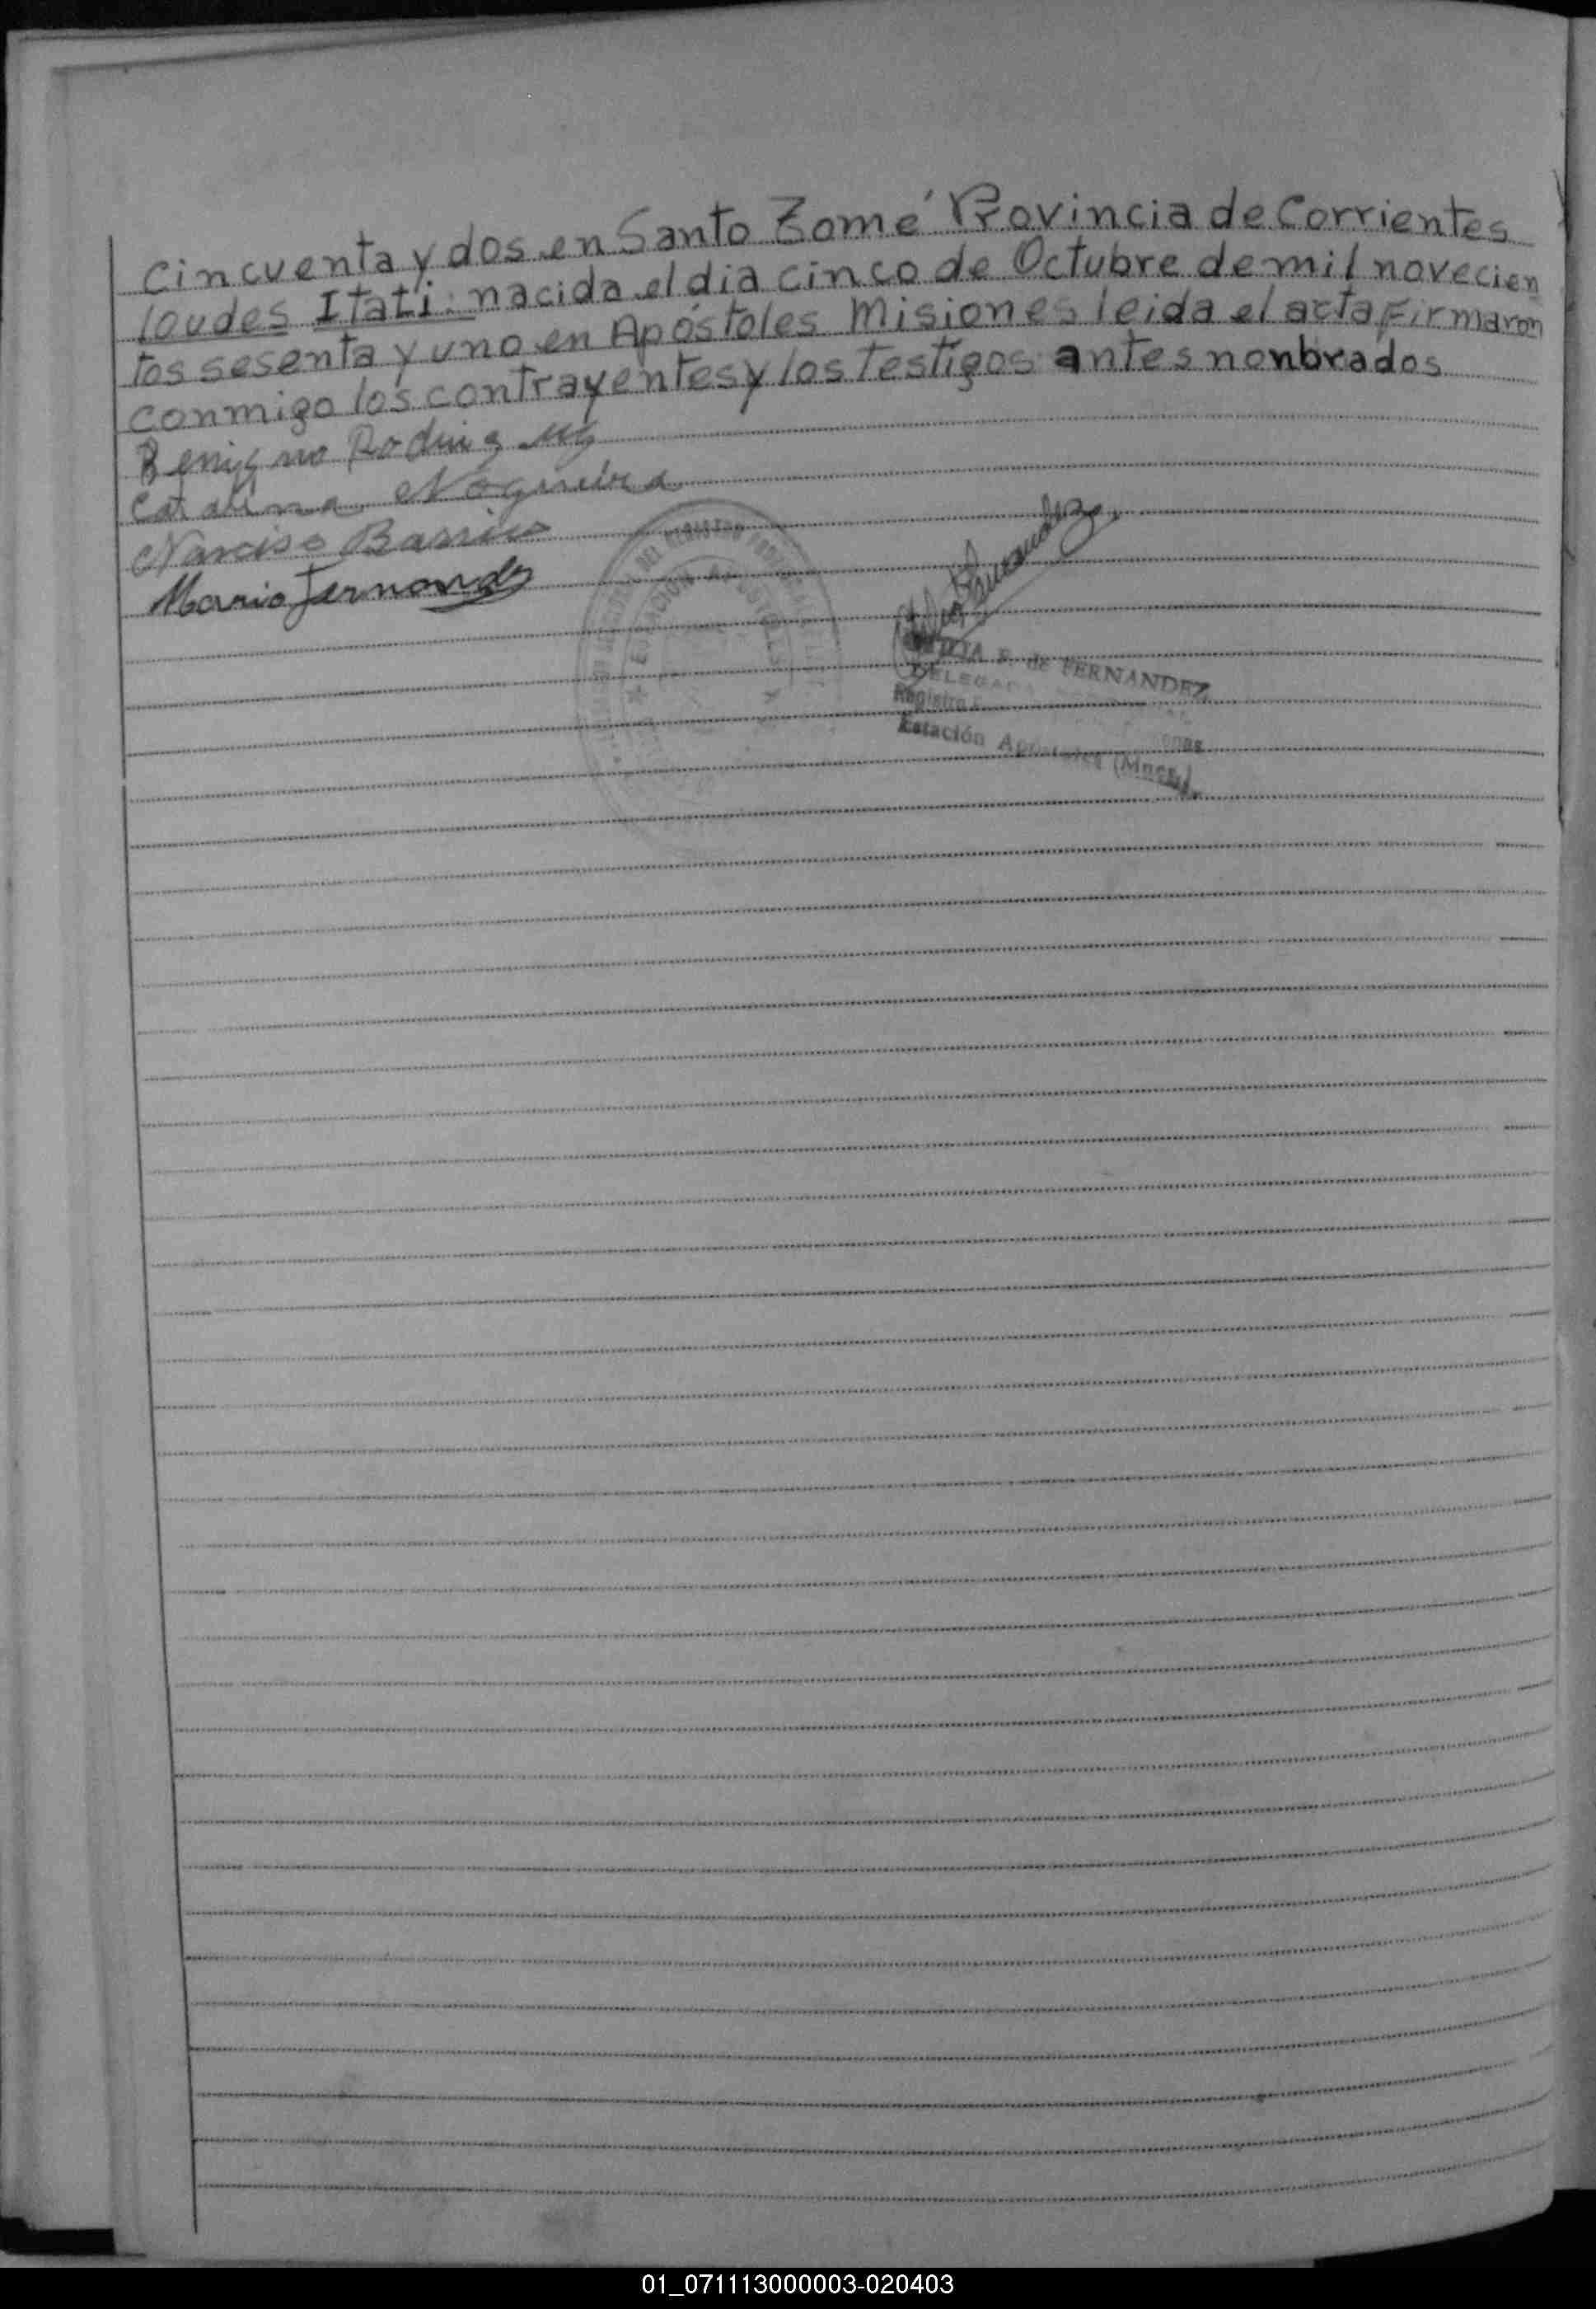 Cincuenta y dos en Santo Tomé Provincia de Corrientes
loudes Itatí nacida el dia cinco de Octubre de mil novecien
tos sesenta y uno en Apóstoles Misiones leida el acta Firmaron
conmigo los contrayentes y los testigos antes nonbrados
Benigno
Catalina Nogueira
Narciso
Mario Fernandez
Fernandez
F. de FERNANDEZ
DELEGADA
Registro
Estación Apóstoles (Mnes.)
01_071113000003-020403